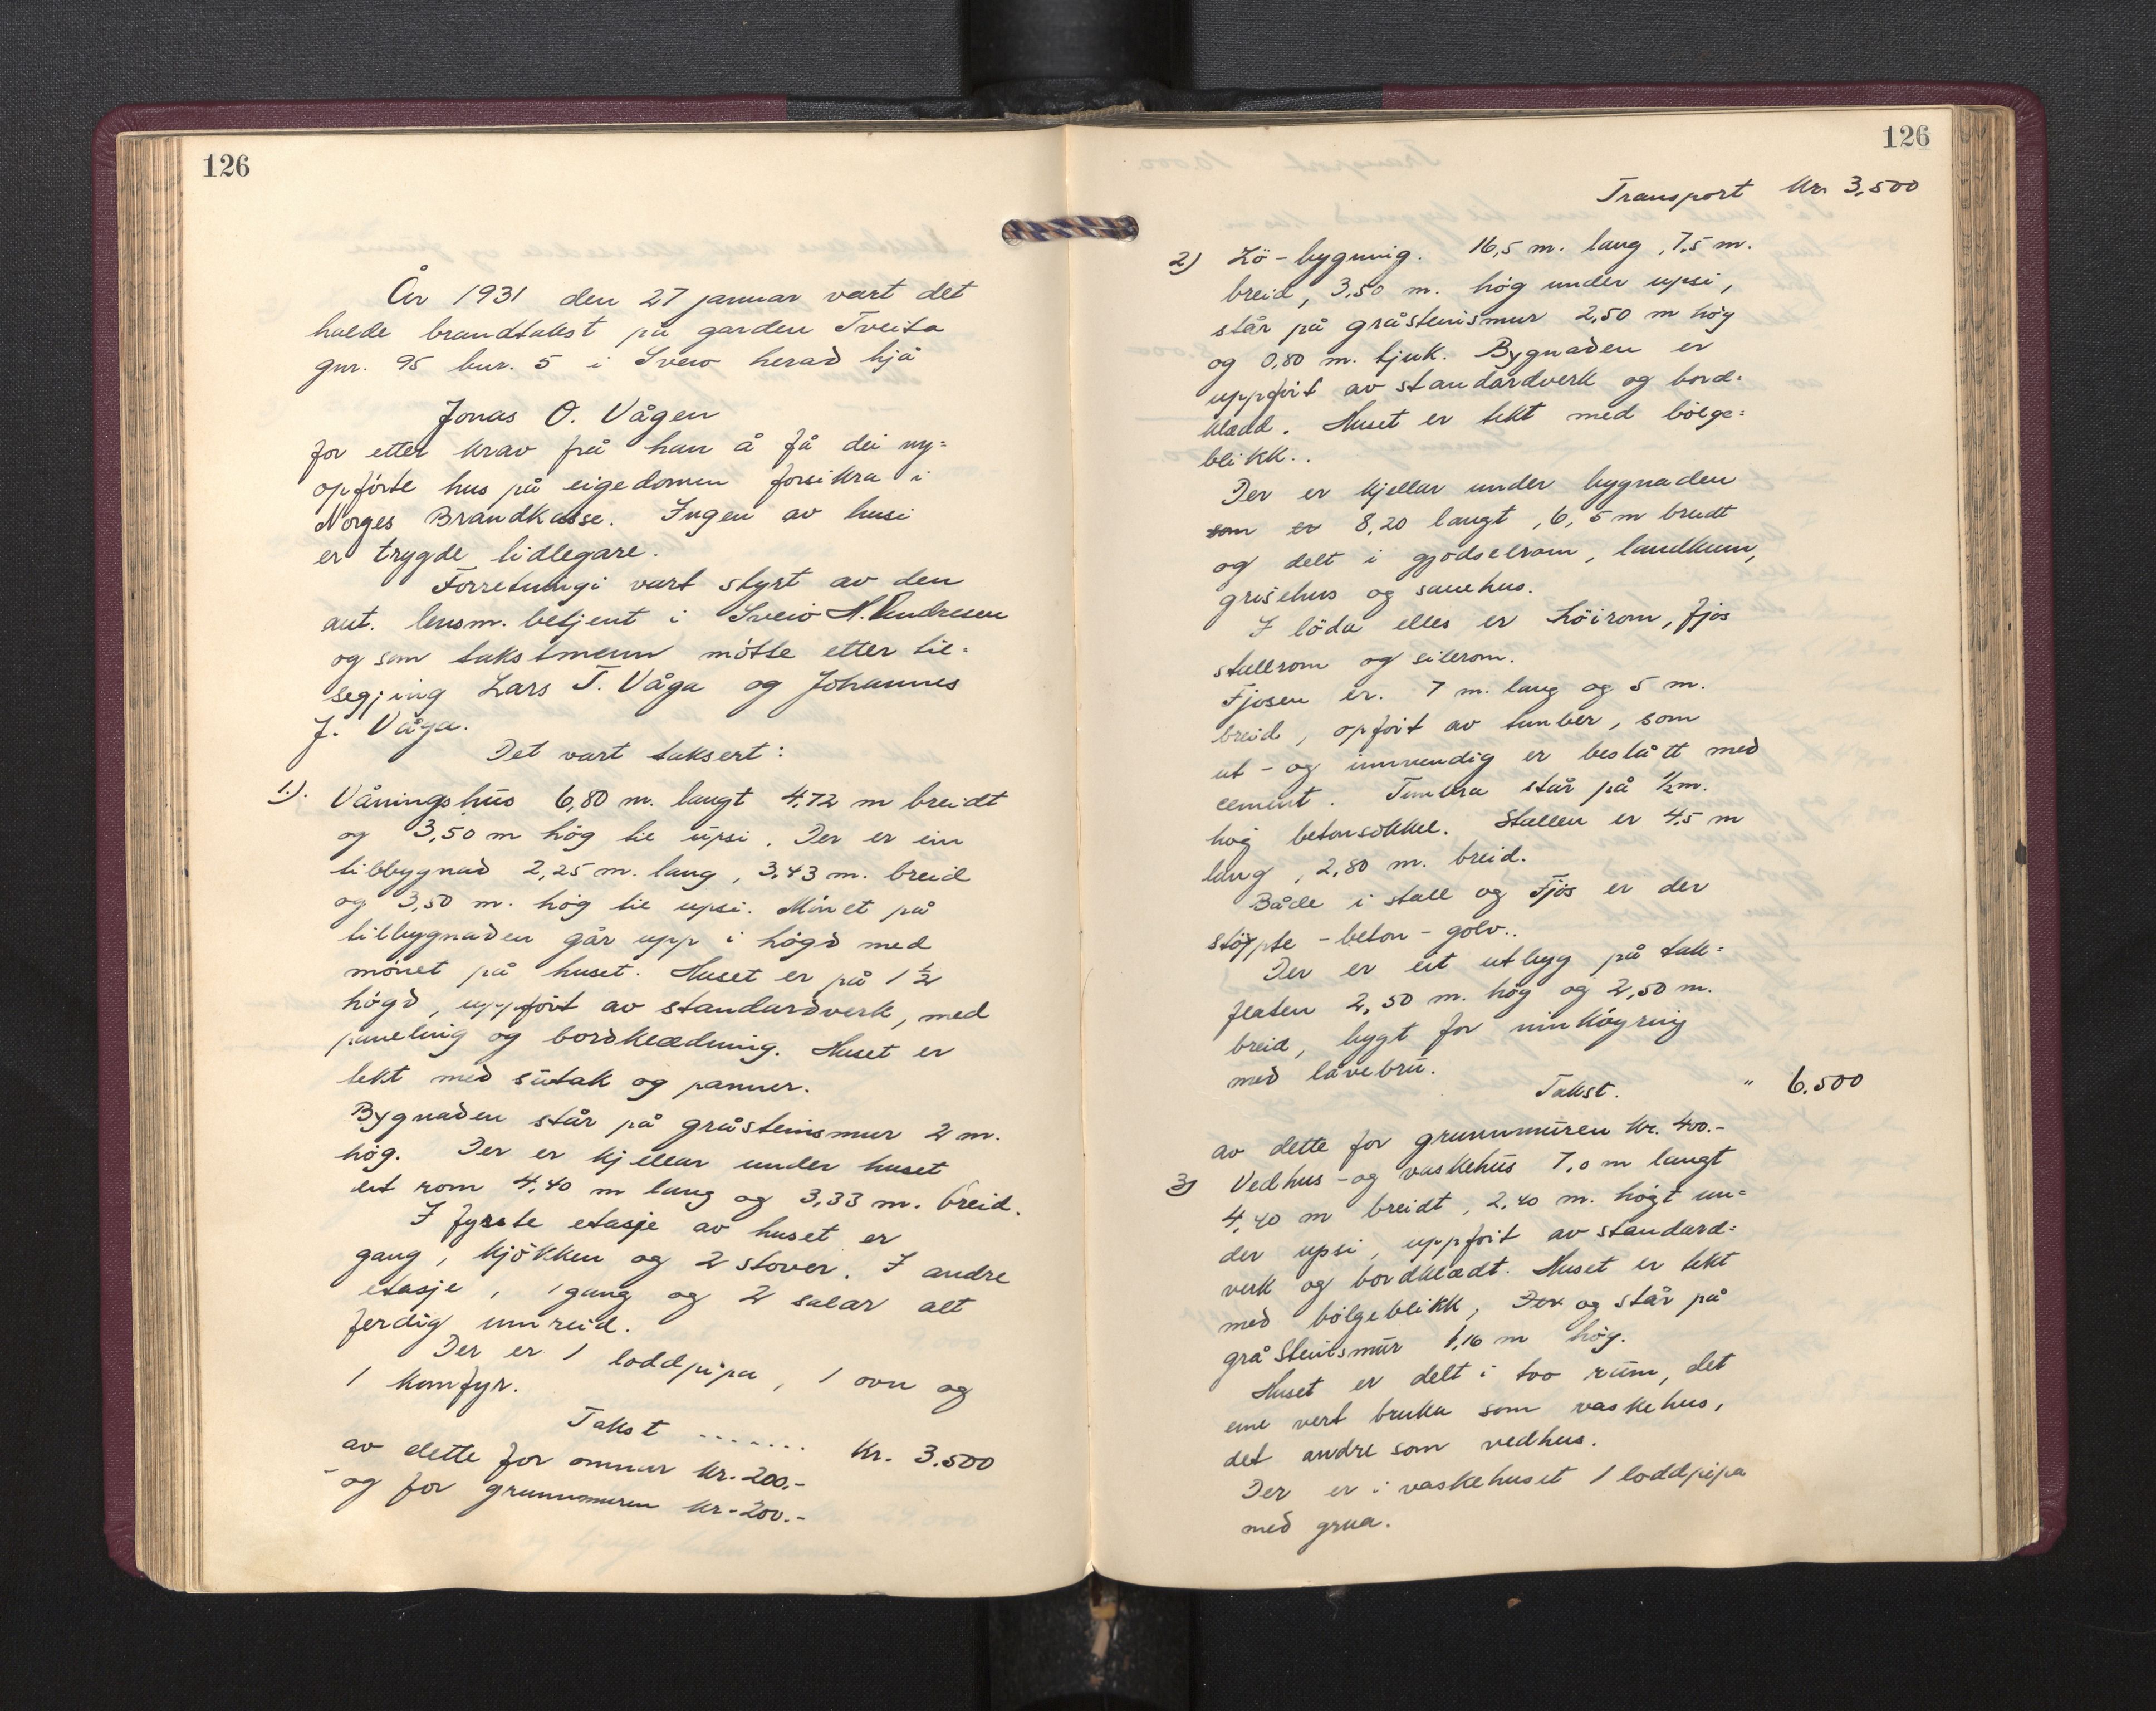 126
År 1931 den 27 januar vart det
halde brandtakst på garden Tveita
gnr. 95 bnr. 5 i Sveio herad hjå
Jonas O. Vågen
for etter krav frå han å få dei ny=
opførte hus på eigedomen forsikra i
Norges Brandkasse. Ingen av husi
er trygde tidlegare.
Forretningi vart styrt av den
aut. lensm. betjent i Sveio N. Andresen
og som takstmenn møtte etter til-
segjing Lars T. Våga og Johannes
J. Våga.
Det vart taksert:
1). Våningshus 6,80 m. langt 4,72 m breidt
og 3,50 m høg til upsi. Der er ein
tilbbygnad 2,25 m. lang, 3,43 m. breid
og 3,50 m. høg til upsi. Mønet på
tilbygnaden går upp i høgd med
mønet på huset. Huset er på 1 ½
høgd, uppført av standardverk, med
paneling og bordklædning. Huset er
tekt med sutak og panner.
Bygnaden står på gråsteinsmur 2 m.
høg. Der er kjellar under huset
eit rom 4,40 m lang og 3,33 m. breid.
I fyrste etasje av huset er
gang, kjøkken og 2 stover. I andre
etasje, 1 gang og 2 salar alt
ferdig innreid.
Der er 1 loddpipa, 1 ovn og
1 komfyr.
Takst ....... Kr. 3.500
av dette for omnar kr. 200.-
- og for grunnmuren kr. 200.-
126
Transport Kr. 3,500
2) Lö-bygning. 16,5 m. lang, 7,5 m.
breid, 3,50 m. høg under upsi,
står på gråsteinsmur 2,50 m høg
og 0,80 m. tjuk. Bygnaden er
uppført av standardverk og bord=
klædd. Huset er tekt med bølge=
blikk..
Der er kjellar under bygnaden
som er 8,20 langt, 6,5 m breidt
og delt i gjødselrom, landkum,
grisehus og sauehus.
I löda elles er høirom, fjøs
stallrom og silerom.
Fjosen er. 7 m. lang og 5 m.
breid, opført av tømber, som
ut- og innvendig er beslått med
cement. Timbra står på ½ m.
høg betonsokkel. Stallen er 4,5 m
lang, 2,80 m. breid.
Både i stall og Fjøs er der
støypte-beton-golv..
Der er eit utbyg på tak=
flaten 2,50 m. høg og 2,50 m.
breid, bygt for innkøyring
med låvebru.
Takst. " 6.500
av dette for grunnmuren kr. 400.-
3) Vedhus- og vaskehus 7,0 m langt
4,40 m breidt, 2,40 m. høgt un=
der upsi, uppført av standard=
verk og bordklædt. Huset er tekt
med bølgeblikk, Der og står på
gråsteinsmur 1,16 m høg.
Huset er delt i tvo rum, det
eine vert bruka som vaskehus,
det andre som vedhus.
Der er i vaskehuset 1 loddpipa
med grua.